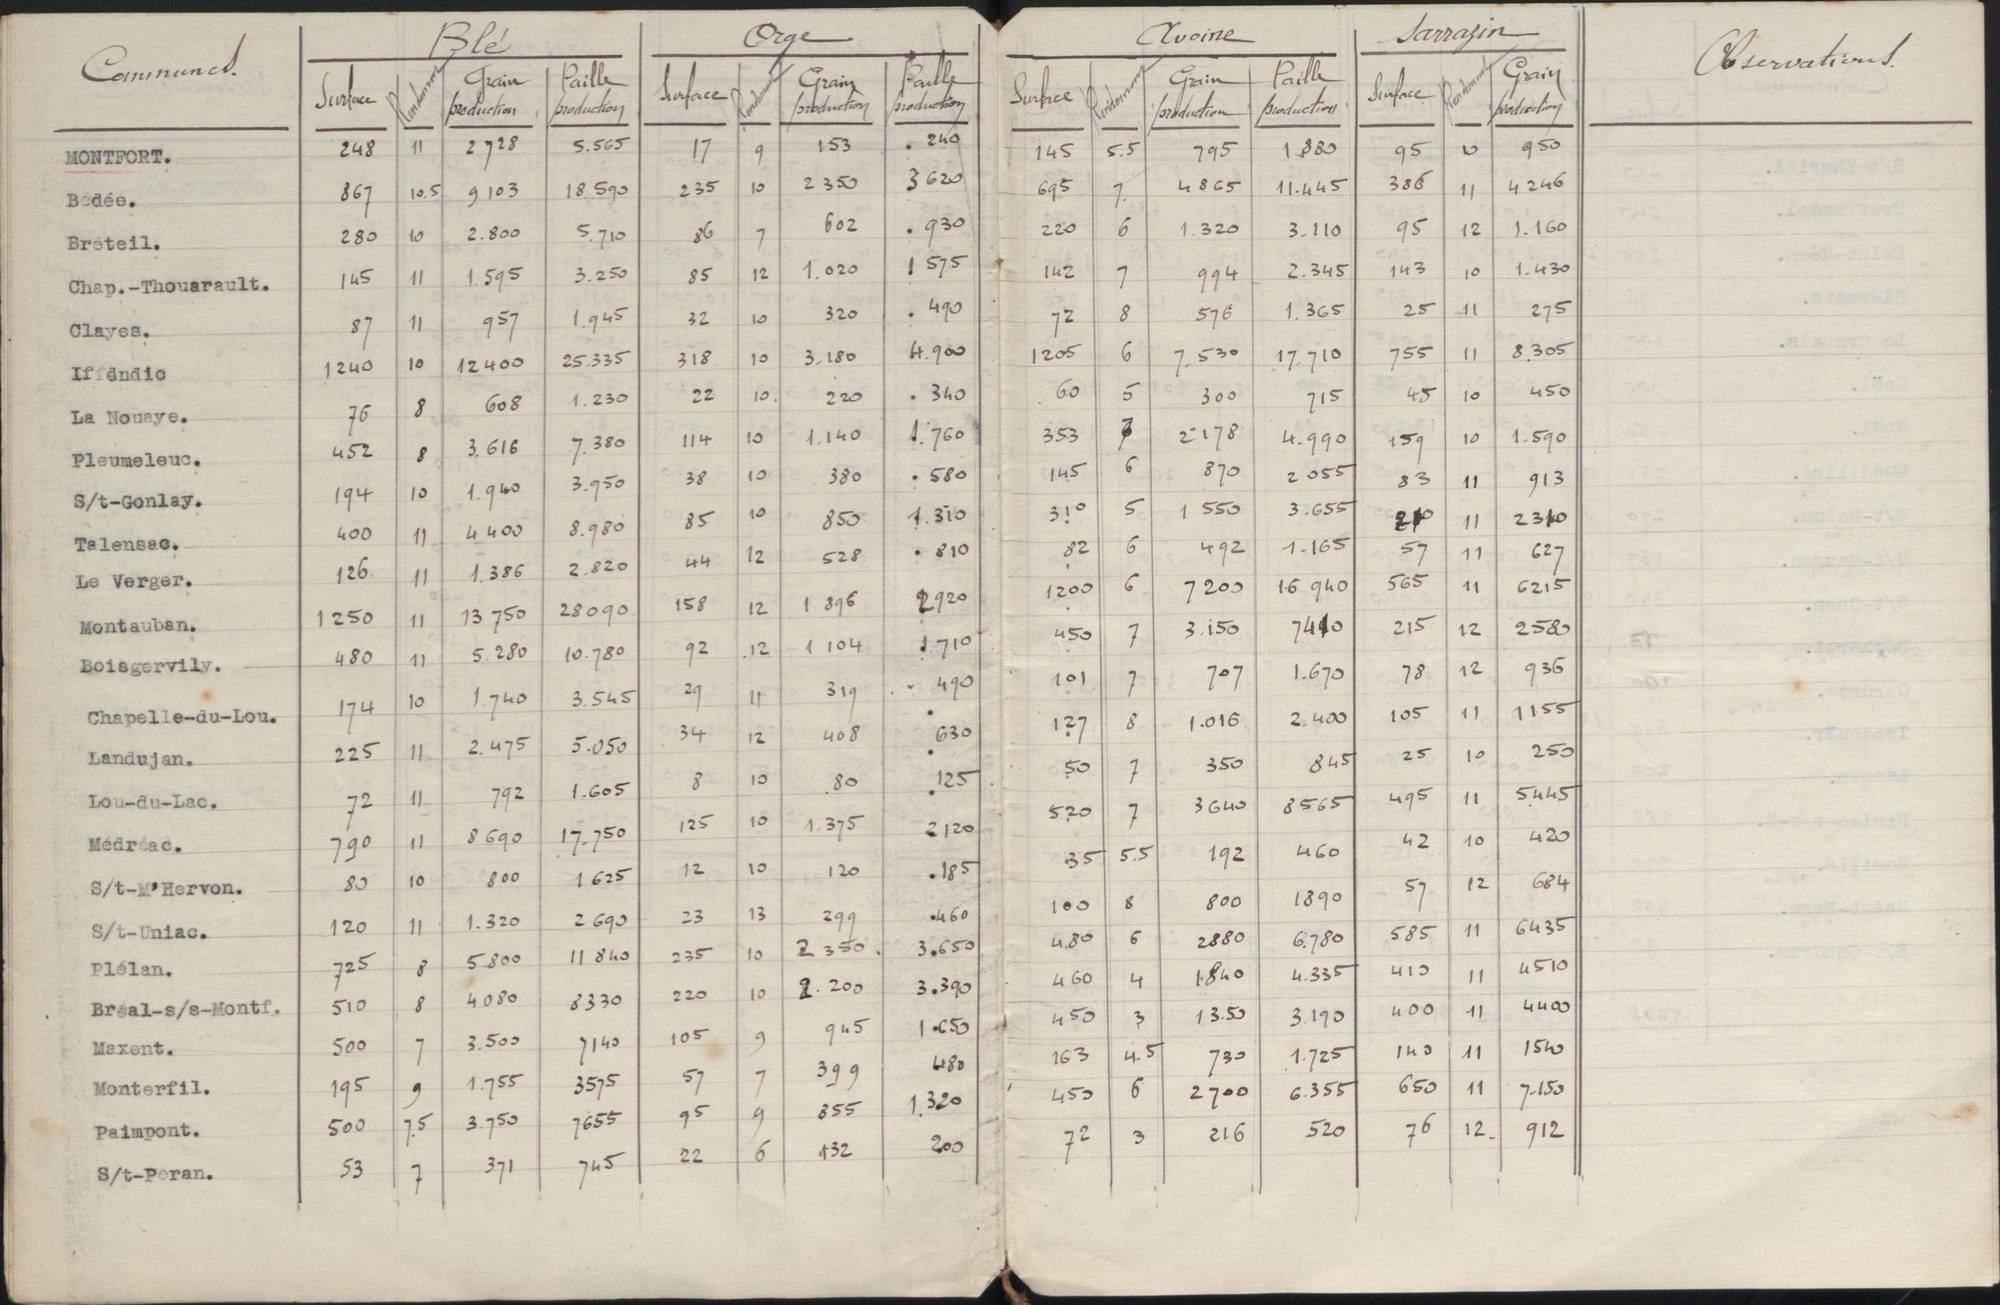 Communes. Blé Orge Avoine Sarrazin Observations.
Surface Rendement Grain production Paille production Surface Rendement Grain production Paille production Surface Rendement Grain production Paille production Surface Rendement Grain production
MONTFORT. 248 11 2728 5.565 17 9 153 . 240 145 5.5 795 1.880 95 10 950
Bédée. 867 10.5 9103 18.590 235 10 2350 3620 695 7. 4865 11.445 386 11 4246
Bréteil. 280 10 2.800 5.710 86 7 602 . 930 220 6 1.320 3.110 95 12 1.160
Chap.-Thouarault. 145 11 1.595 3.250 85 12 1.020 1575 142 7 994 2.345 143 10 1.430
Clayes. 87 11 957 1.945 32 10 320 . 490 72 8 576 1.365 25 11 275
Iffendic 1240 10 12400 25.335 318 10 3.180 4.900 1205 6 7.530 17.710 755 11 8.305
La Nouaye. 76 8 608 1.230 22 10. 220 . 340 60 5 300 715 45 10 450
Pleumeleuc. 452 8 3.616 7.380 114 10 1.140 1.760 353 7 2178 4.990 159 10 1.590
S/t-Gonlay. 194 10 1.940 3.950 38 10 380 . 580 145 6 870 2055 83 11 913
Talensac. 400 11 4400 8.980 85 10 850 1.310 310 5 1550 3.655 210 11 2310
Le Verger. 126 11 1.386 2.820 44 12 528 . 810 82 6 492 1.165 57 11 627
Montauban. 1250 11 13750 28090 158 12 1896 2920 1200 6 7200 16940 565 11 6215
Boisgervily. 480 11 5.280 10.780 92 12 1104 1.710 450 7 3.150 7410 215 12 2580
Chapelle-du-Lou. 174 10 1.740 3.545 29 11 319 . 490 101 7 707 1.670 78 12 936
Landujan. 225 11 2.475 5.050 34 12 408 . 630 127 8 1.016 2.400 105 11 1155
Lou-du-Lac. 72 11 792 1.605 8 10 80 . 125 50 7 350 845 25 10 250
Médréac. 790 11 8690 17.750 125 10 1.375 2120 520 7 3640 8565 495 11 5445
S/t-M'Hervon. 80 10 800 1625 12 10 120 .185 35 5.5 192 460 42 10 420
S/t-Uniac. 120 11 1.320 2690 23 13 299 .460 100 8 800 1890 57 12 684
Plélan. 725 8 5.800 11840 235 10 2350. 3.650 480 6 2880 6.780 585 11 6435
Bréal-s/s-Montf. 510 8 4080 8330 220 10 2.200 3.390 460 4 1.840 4.335 410 11 4510
Maxent. 500 7 3.500 7140 105 9 945 1.650 450 3 13.50 3.190 400 11 4400
Monterfil. 195 9 1.755 3575 57 7 399 480 163 4.5 730 1.725 140 11 1540
Paimpont. 500 7.5 3.750 7655 95 9 855 1.320 450 6 2700 6.355 650 11 7.150
S/t-Peran. 53 7 371 745 22 6 132 200 72 3 216 520 76 12. 912